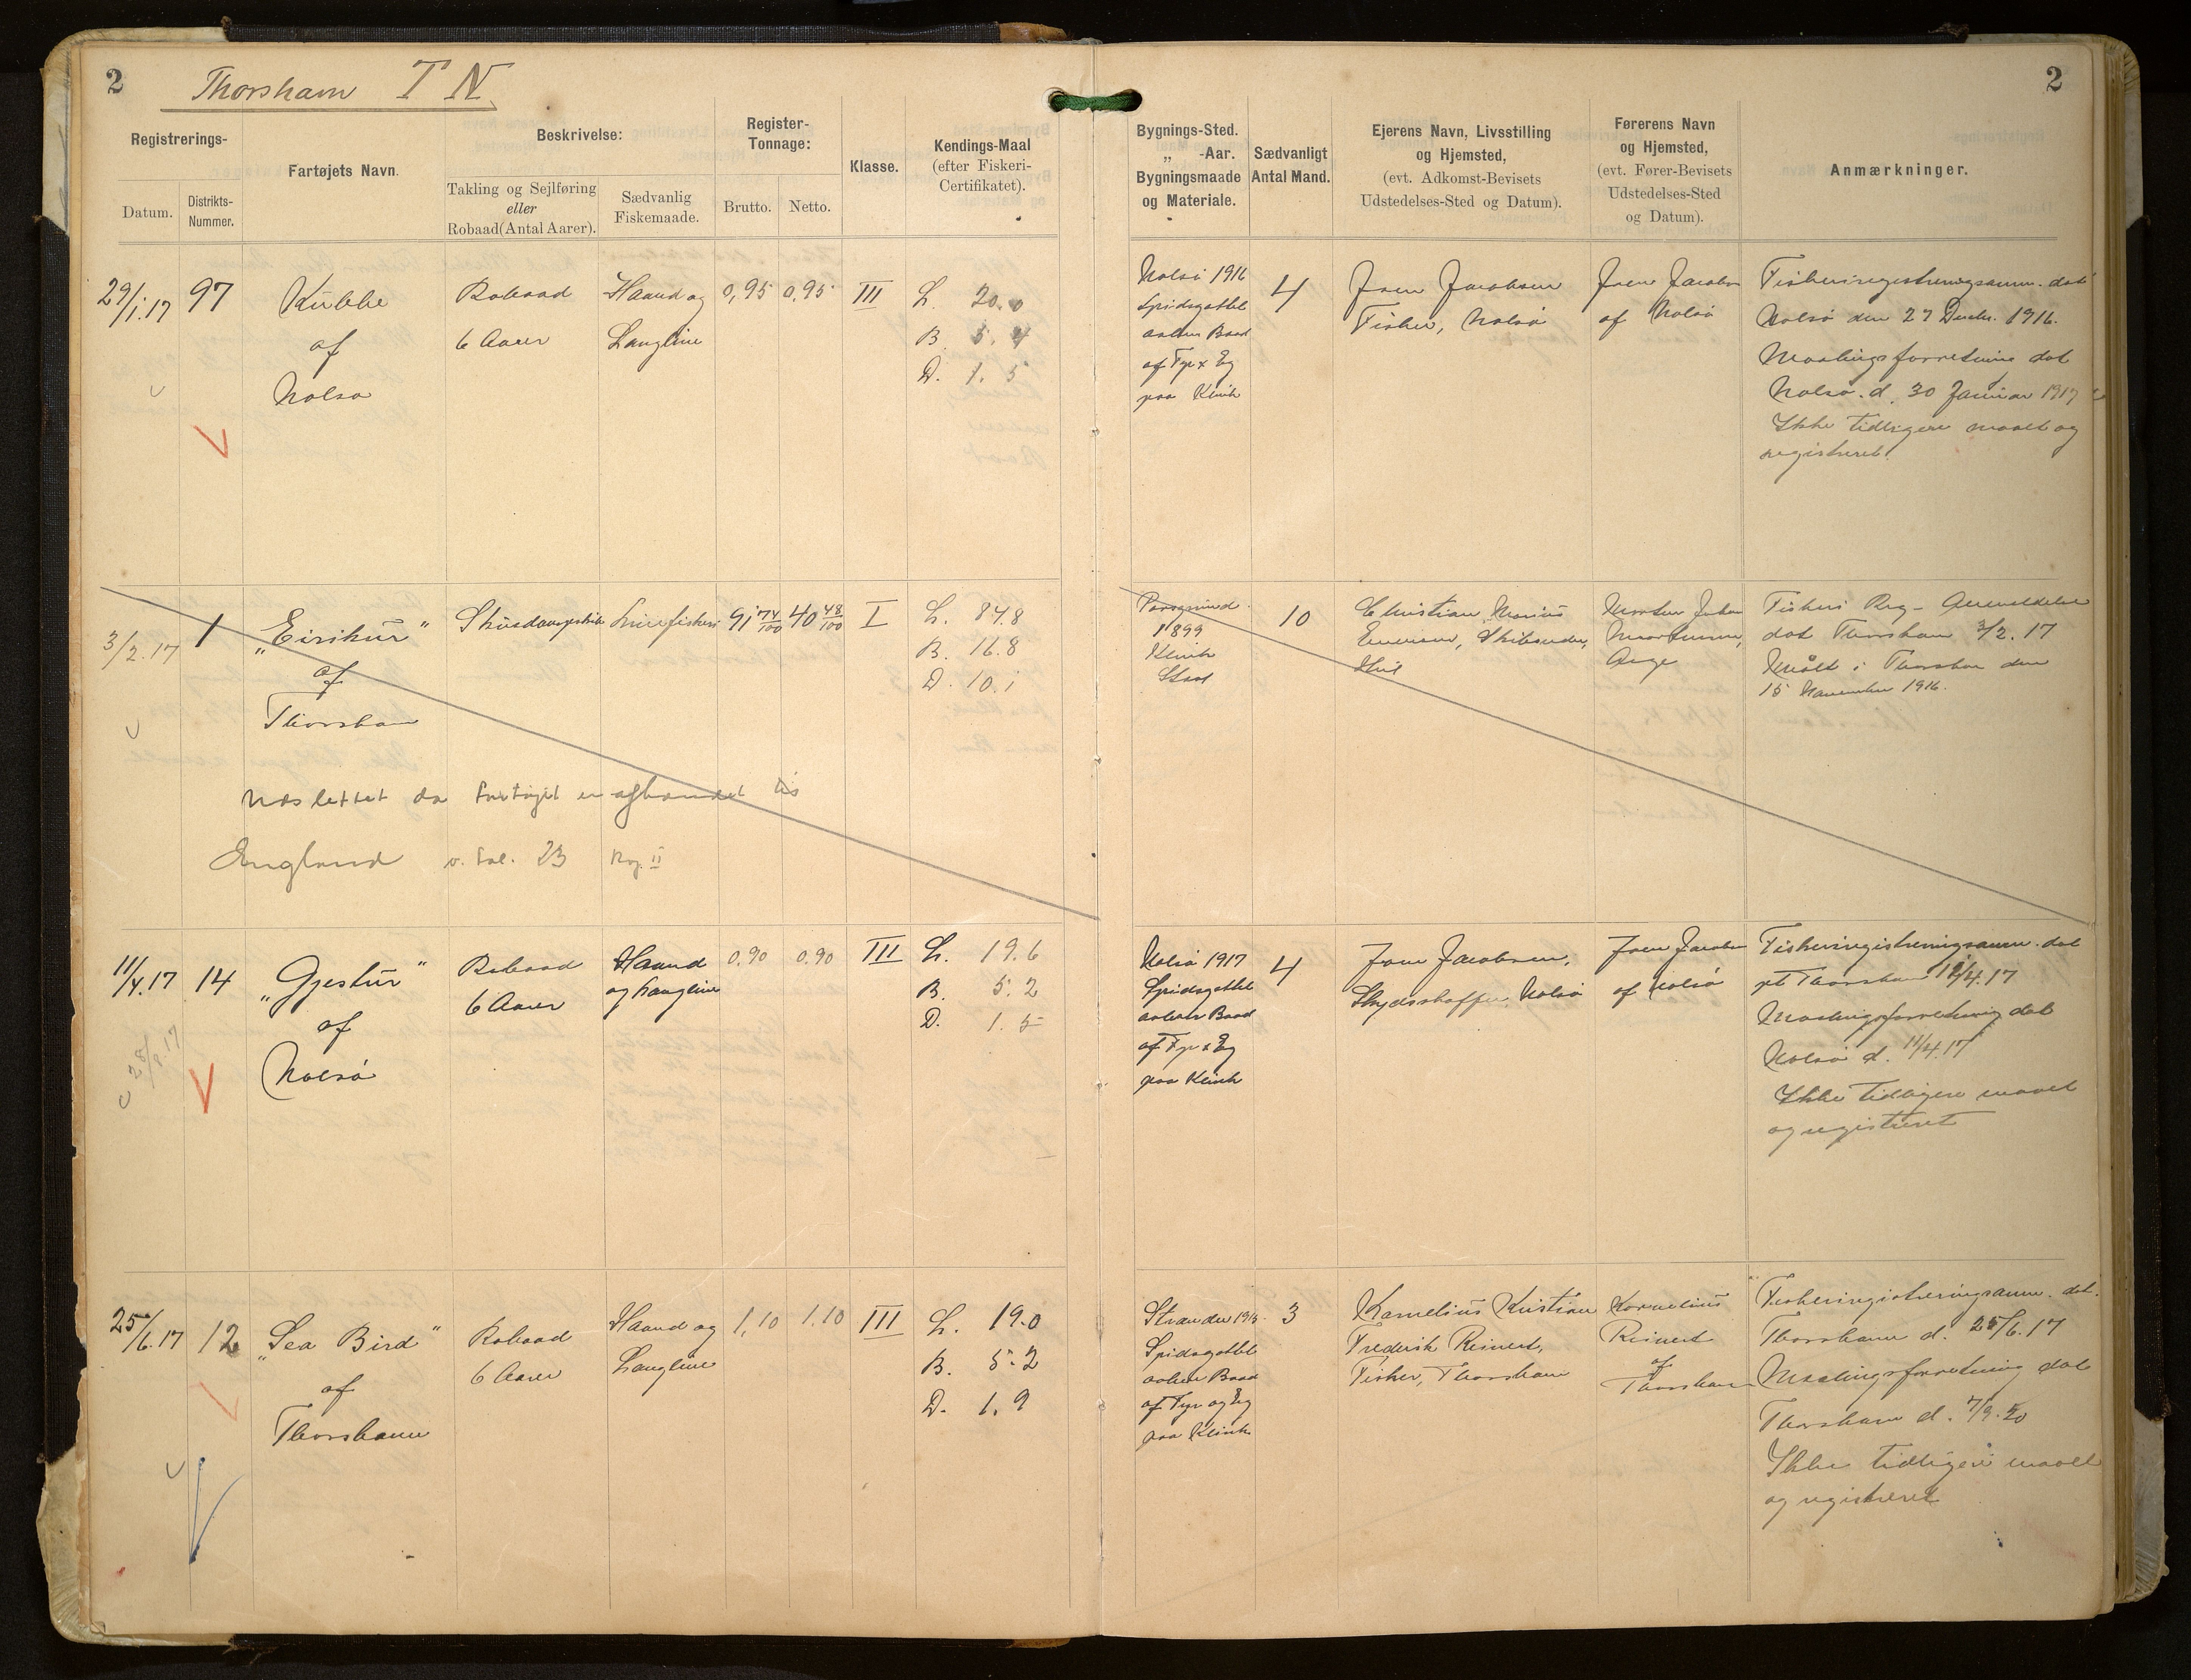 2
Thorshavn T N.
2
Registrerings-
Datum.
Distrikts-
Nummer.
Fartøjets Navn.
Beskrivelse:
Takling og Sejlføring
eller
Robaad (Antal Aarer).
Sædvanlig
Fiskemaade.
Register-
Tonnage:
Brutto.
Netto.
Klasse.
Kendings-Maal
(efter Fiskeri-
Certifikatet).
Bygnings-Sted.
„ -Aar.
Bygningsmaade
og Materiale.
Sædvanligt
Antal Mand.
Ejerens Navn, Livsstilling
og Hjemsted,
(evt. Adkomst-Bevisets
Udstedelses-Sted og Datum).
Førerens Navn
og Hjemsted,
(evt. Fører-Bevisets
Udstedelses-Sted
og Datum).
Anmærkninger.
29/1.17
97
Kubbe
af
Nolsø
Robaad
6 Aarer
Haand og
Langline
0,95
0,95
III
L. 20.0
B. 5.4
D. 1.5
Nolsø 1916
Spidsgattet
aaben Baad
af Fyr & Eg
paa Klink
4
Joen Jacobsen
Fisker, Nolsø
Joen Jacobsen
af Nolsø
Fiskeriregistreringsanm. dat
Nolsø den 27 Decbr. 1916.
Maalingsforretning dat
Nolsø. d. 30 Januar 1917
Ikke tidligere maalt og
registreret.
3/2.17
1
„Eirikur“
af
Thorshavn
Linefiskeri
91 74/100
40 48/100
I
L. 84.8
B. 16.8
D. 10.1
Udslettet da Fartøjet er afhændet til
England v. Fol. 23 Reg. II
Porsgrund
1899
Klink
10
Christian Marius
Emmersen, Skibsreder,
Morten Johan
Mortensen,
Fiskeri Reg- Anmeldelse
dat Thorshavn 3/2.17
Målt i Thorshavn den
15 November 1916.
11/4.17
14
„Gjestur“
af
Nolsø
28/8.17
Robaad
6 Aarer
Haand
og Langline
0.90
0.90
III
L. 19.6
B. 5.2
D. 1.5
Nolsø 1917
Spidsgattet
aaben Baad
af Fyr & Eg
paa Klink
4
Joen Jacobsen,
Skydsskaffer, Nolsø
Joen Jacobsen
af Nolsø
Fiskeriregistreringsanm. dat
pt Thorshavn 12/4.17
Maalingsforretning dat
Nolsø d. 11/4.17
Ikke tidligere maalt
og registreret
25/6.17
12
„Sea Bird“
af
Thorshavn
Robaad
6 Aarer
Haand og
Langline
1,10
1.10
III
L. 19.0
B. 5.2
D. 1.9
Strander
Spidsgattet
aaben Baad
af Fyr og Eg
paa Klink
3
Kornelius Kristian
Frederik Reinert,
Fisker, Thorshavn
Kornelius
Reinert
af
Thorshavn
Fiskeriregistreringsanm. dat.
Thorshavn d. 25/6.17
Maalingsforretning dat
Thorshavn d. 7/9.20
Ikke tidligere maalt
og registreret